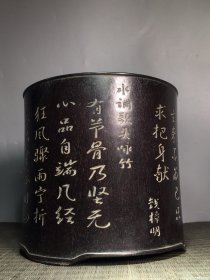 求把身献
钱樟明
水调歌头咏竹
有节骨乃坚无
心品自端几经
狂风骤雨宁折